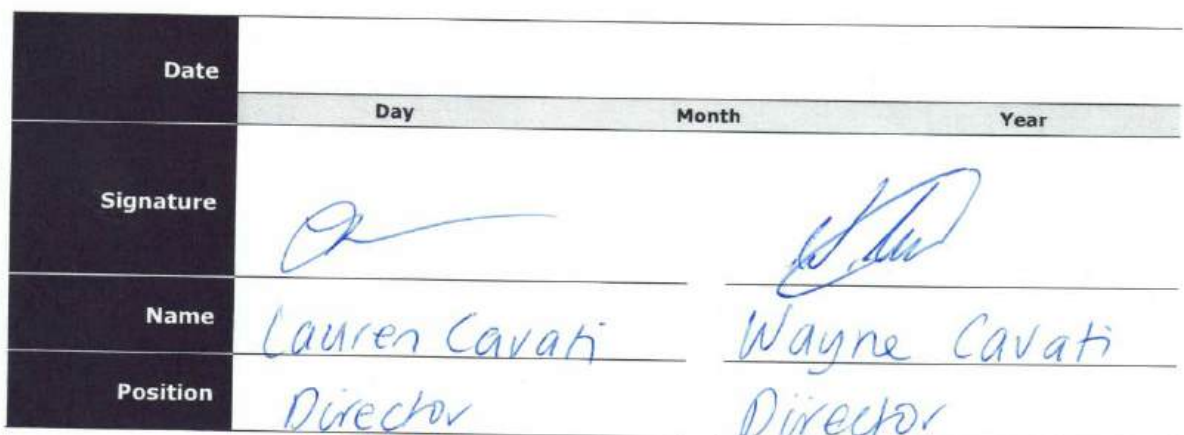 Date
Day Month Year
Signature
Name Lauren Cavati Wayne Cavati
Position Director Director